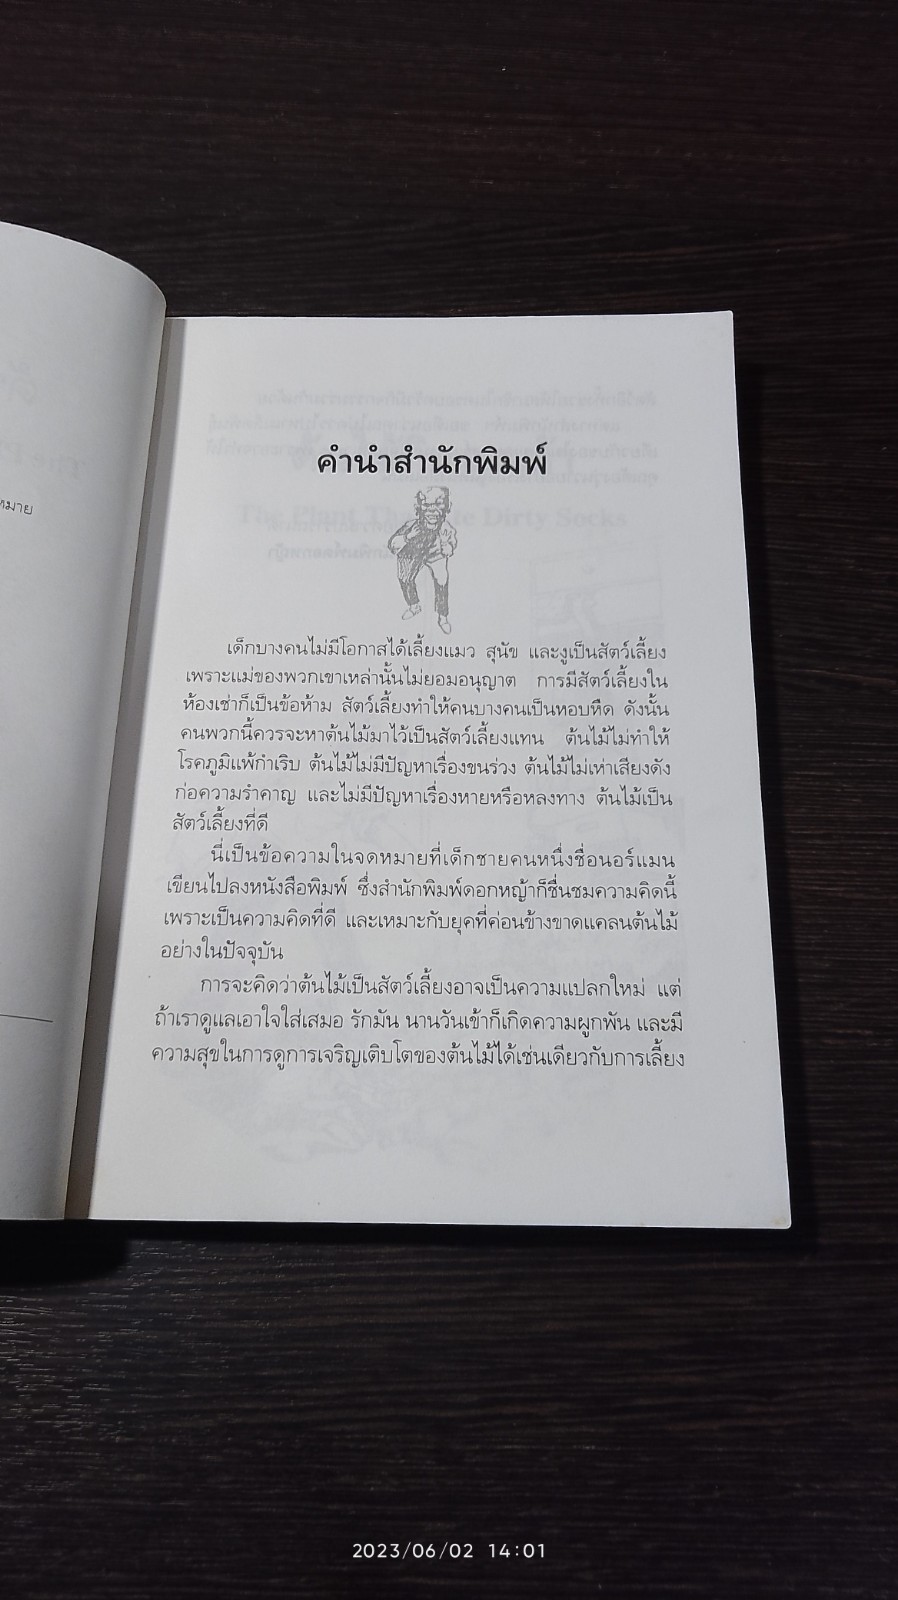 หมาย
คำนำสำนักพิมพ์
The Plant That Ate Dirty Socks
เด็กบางคนไม่มีโอกาสได้เลี้ยงแมว สุนัข และงูเป็นสัตว์เลี้ยง
เพราะแม่ของพวกเขาเหล่านั้นไม่ยอมอนุญาต การมีสัตว์เลี้ยงใน
ห้องเช่าก็เป็นข้อห้าม สัตว์เลี้ยงทำให้คนบางคนเป็นหอบหืด ดังนั้น
คนพวกนี้ควรจะหาต้นไม้มาไว้เป็นสัตว์เลี้ยงแทน ต้นไม้ไม่ทำให้
โรคภูมิแพ้กำเริบ ต้นไม้ไม่มีปัญหาเรื่องขนร่วง ต้นไม้ไม่เห่าเสียงดัง
ก่อความรำคาญ และไม่มีปัญหาเรื่องหายหรือหลงทาง ต้นไม้เป็น
สัตว์เลี้ยงที่ดี
นี่เป็นข้อความในจดหมายที่เด็กชายคนหนึ่งชื่อนอร์แมน
เขียนไปลงหนังสือพิมพ์ ซึ่งสำนักพิมพ์ดอกหญ้าก็ชื่นชมความคิดนี้
เพราะเป็นความคิดที่ดี และเหมาะกับยุคที่ค่อนข้างขาดแคลนต้นไม้
อย่างในปัจจุบัน
การจะคิดว่าต้นไม้เป็นสัตว์เลี้ยงอาจเป็นความแปลกใหม่ แต่
ถ้าเราดูแลเอาใจใส่เสมอ รักมัน นานวันเข้าก็เกิดความผูกพัน และมี
ความสุขในการดูการเจริญเติบโตของต้นไม้ได้เช่นเดียวกับการเลี้ยง
2023/06/02 14:01